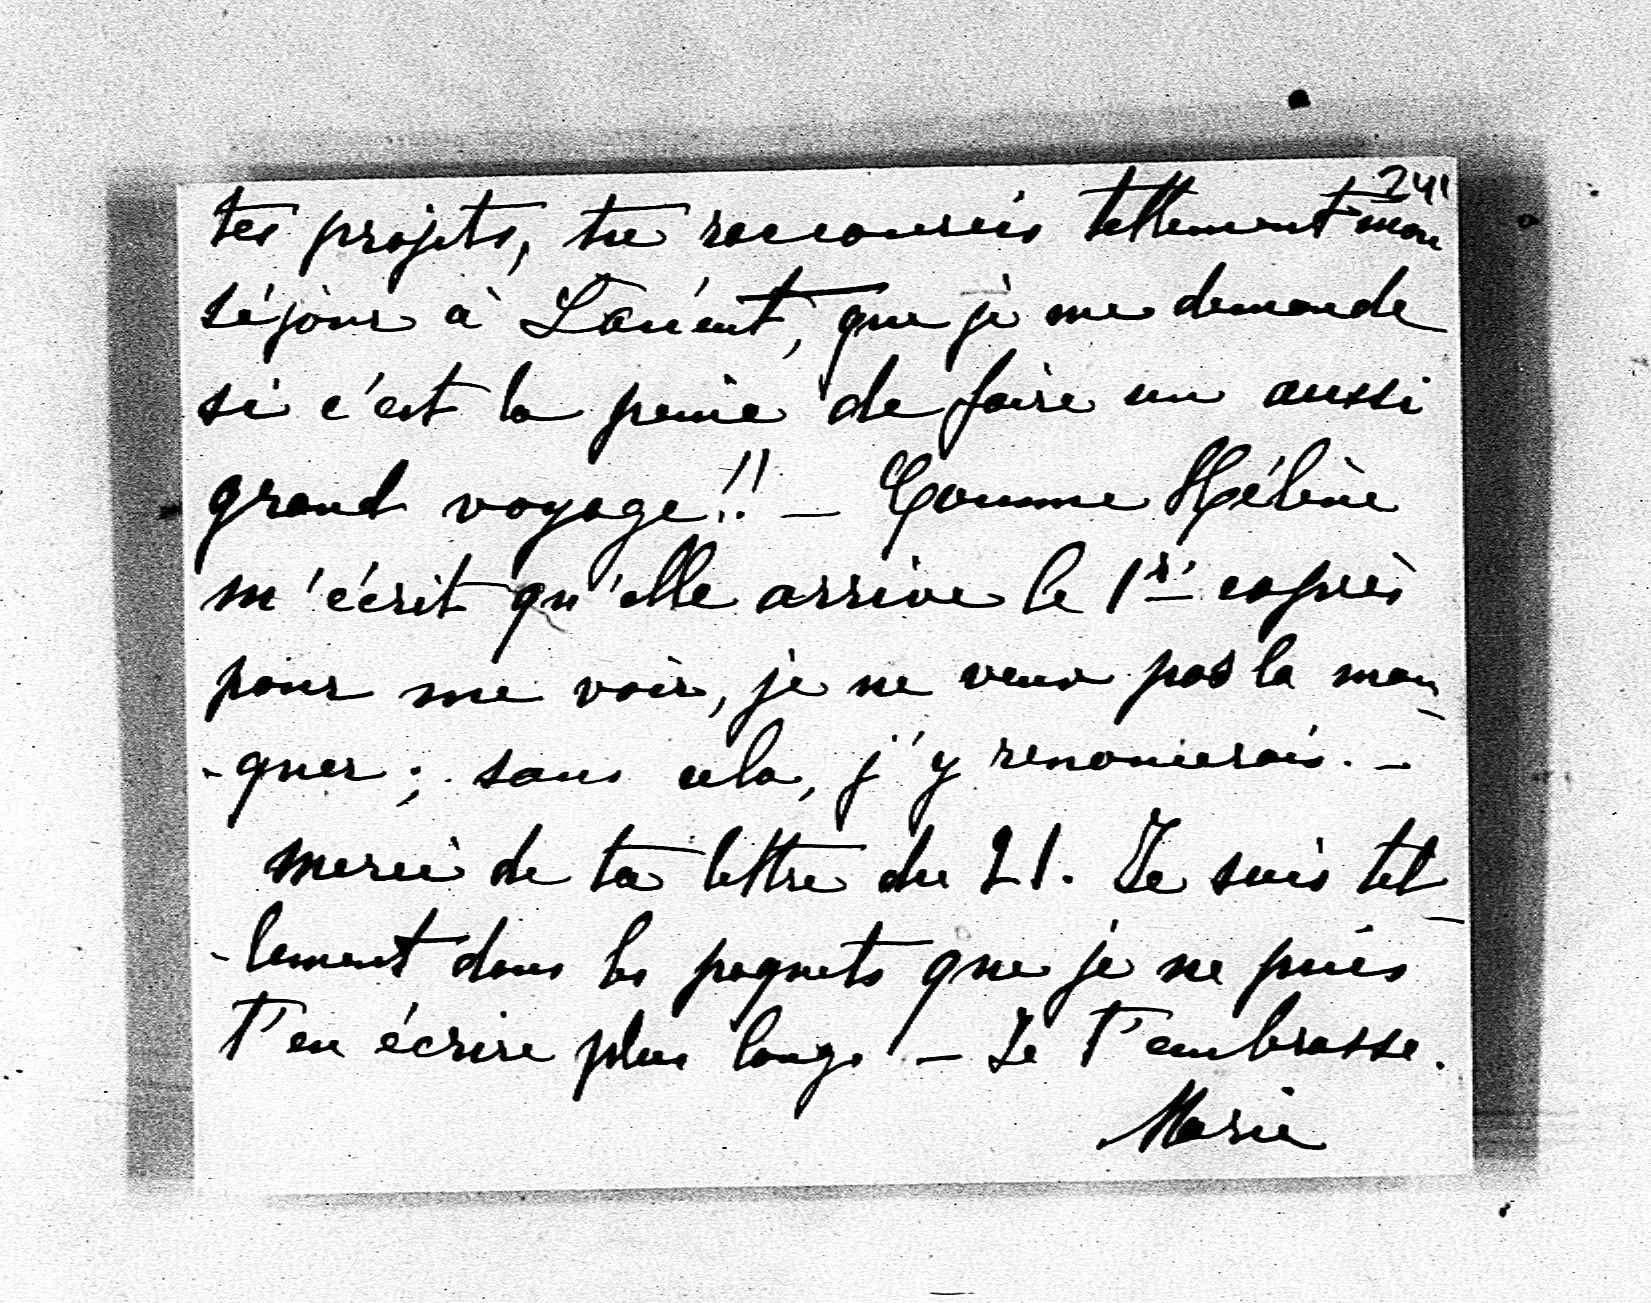 241
tes projets, tu raccourcis tellement mon
séjour à Lorient, que je me demande
si c'est la peine de faire un aussi
grand voyage!! — Comme Hélène
m'écrit qu'elle arrive le 1er exprès
pour me voir, je ne veux pas la man-
-quer; sans cela, j'y renoncerais. —
Merci de ta lettre du 21. Je suis tel-
-lement dans les paquets que je ne puis
t'en écrire plus long. — Je t'embrasse.
Marie